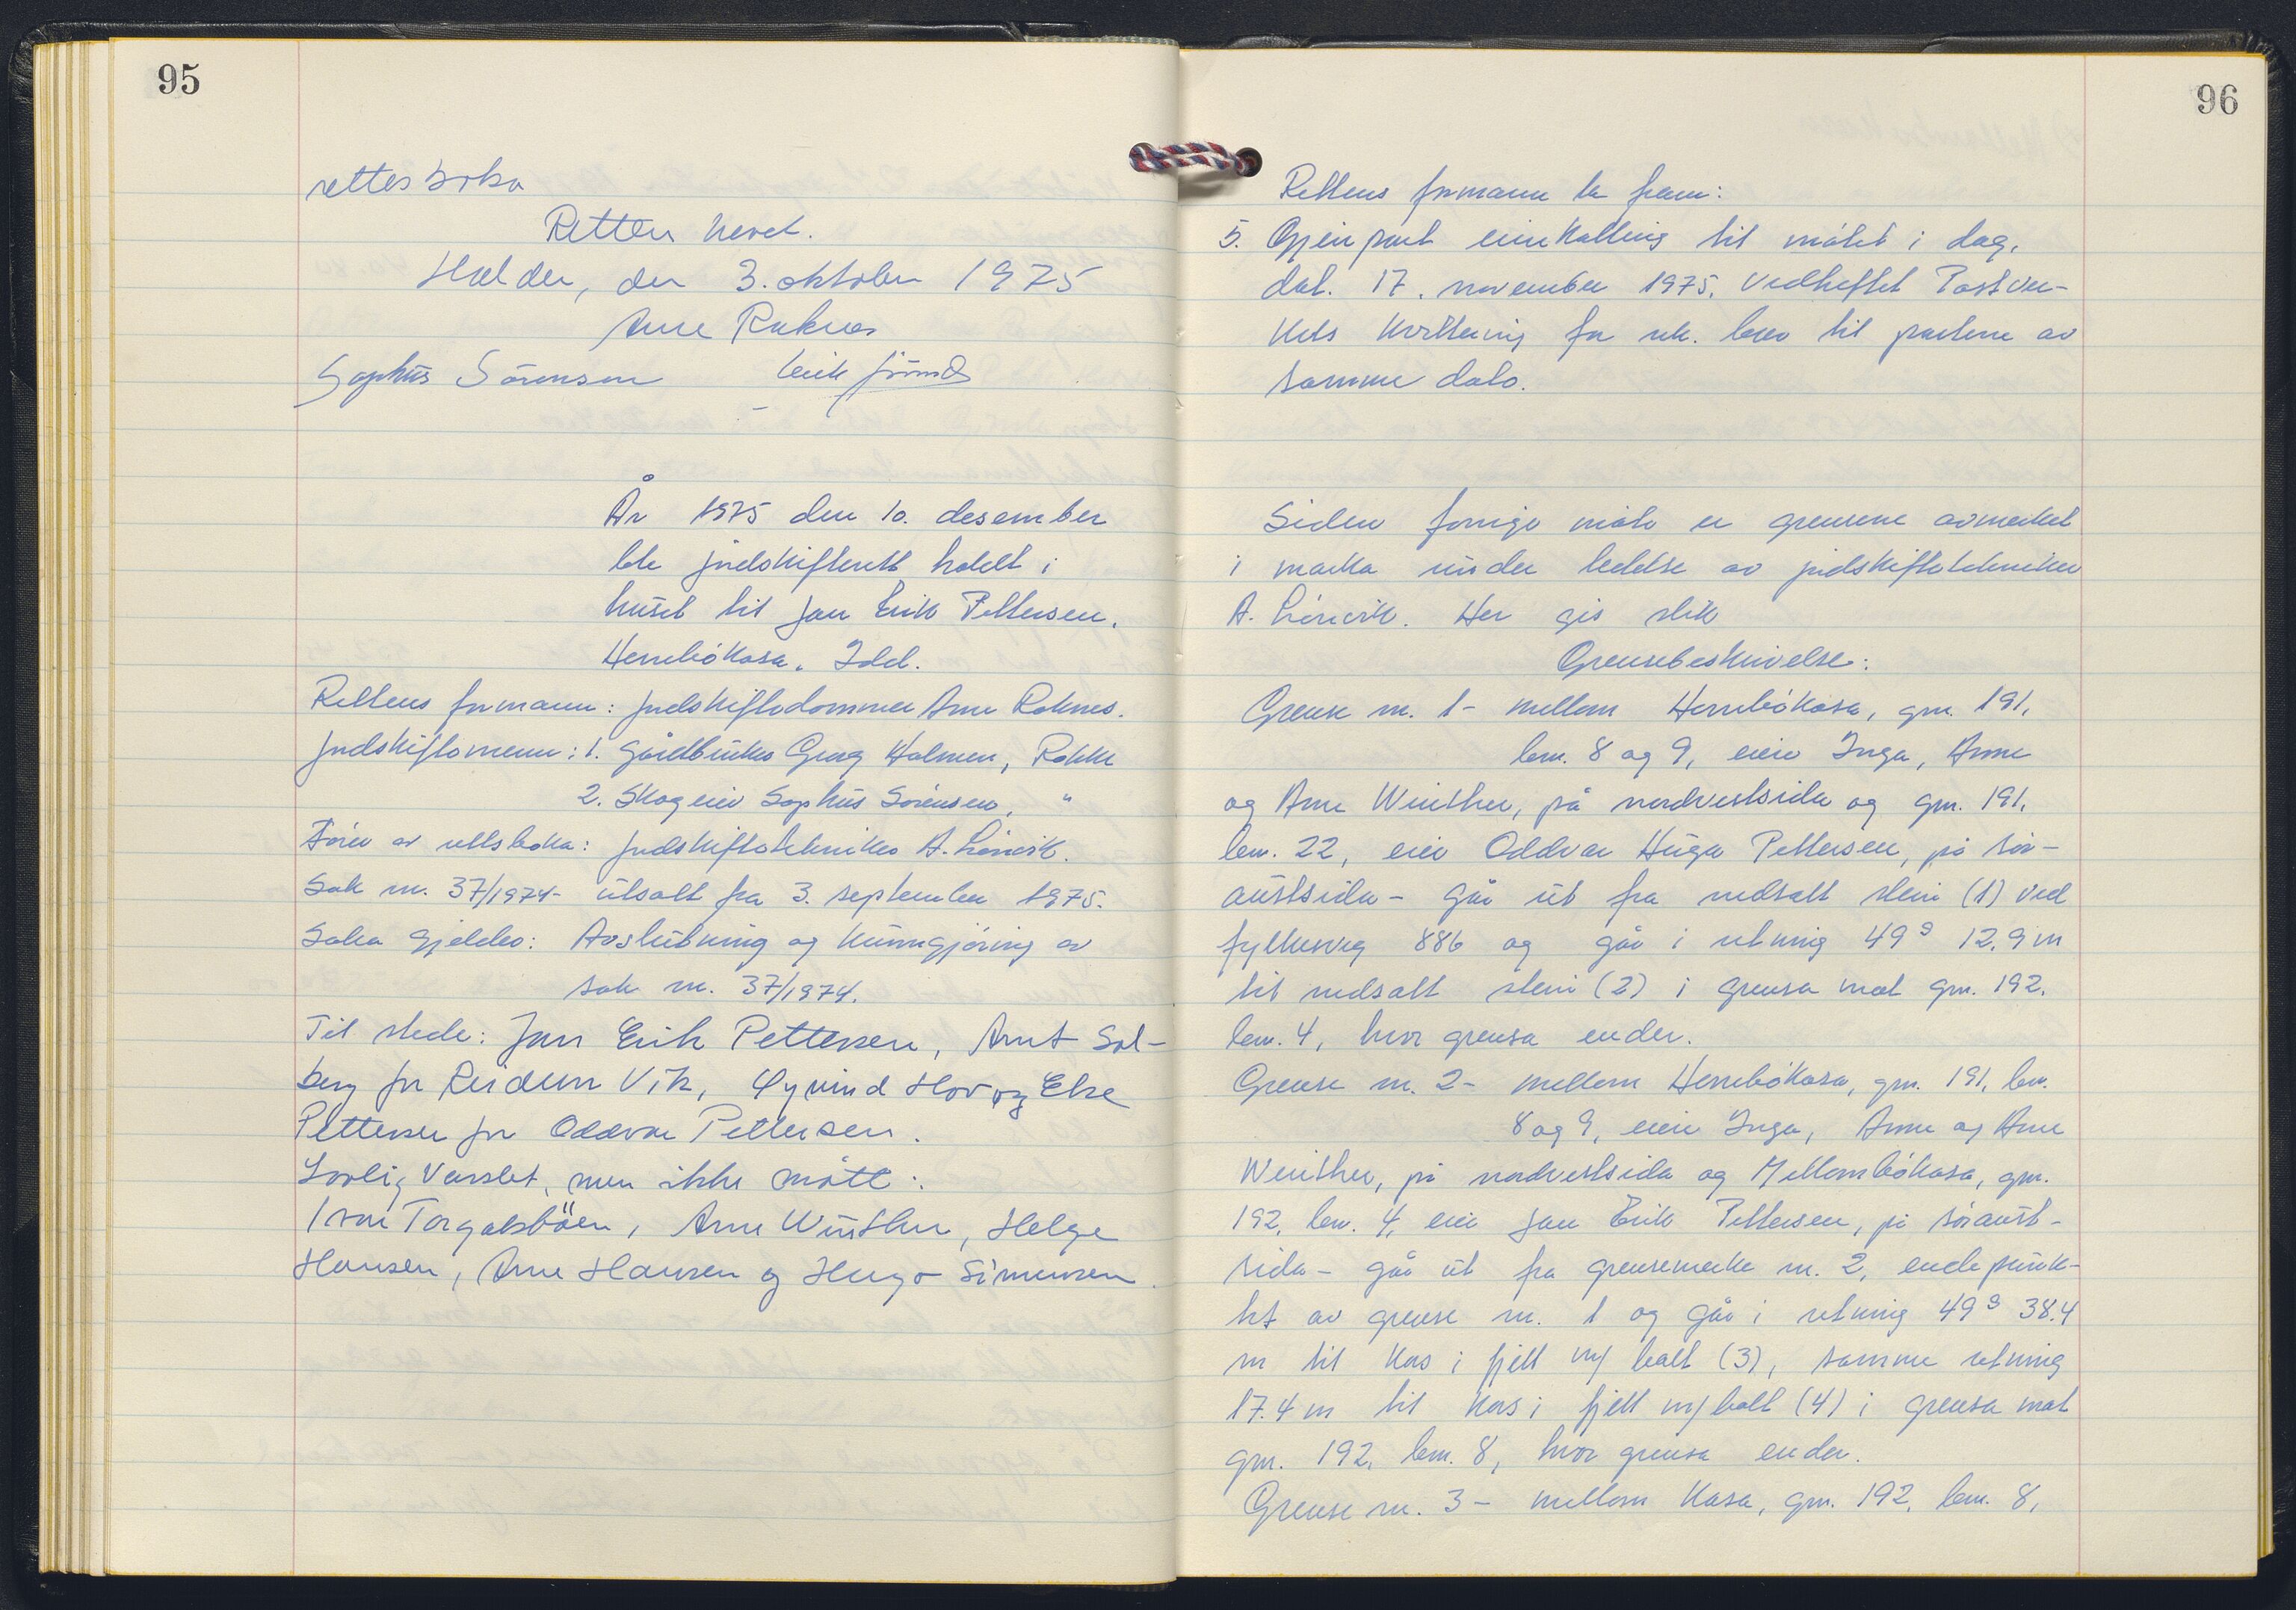 95
rettesboka
Retten hevet.
Halden, den 3. oktober 1975
Arne Raknes
Sophus Sørensen Erik
År 1975 den 10. desember
ble jordskifterett holdt i
huset til Jan Erik Pettersen,
Herrebøkasa, Idd.
Rettens formann: Jordskiftedommer Arne Raknes.
Jordskiftemenn: 1. Gårdbruker Georg Holmen, Rokke
2. Skogeier Sophus Sørensen, "
Fører av rettsboka: Jordskiftetekniker A. Lörvik.
Sak nr. 37/1974 - utsatt fra 3. september 1975.
Saka gjelder: Avslutning og kunngjøring av
sak nr. 37/1974.
Til stede: Jan Erik Pettersen, Arnt Sol-
berg for Reidun Vik, Øyvind Hov og Else
Pettersen for Oddvar Pettersen.
Lovlig varslet, men ikke møtt:
Ivar Torgalsbøen, Arne Winther, Helge
Hansen, Arne Hansen og Hugo Simensen.
96
Rettens formann la fram:
5. Gjenpart innkalling til møtet i dag,
dat. 17. november 1975. Vedheftet Postver-
kets kvittering for rek. brev til partene av
samme dato.
Siden forrige møte er grensene avmerket
i marka under ledelse av jordskiftetekniker
A. Lörvik. Her gis slik
Grensebeskrivelse:
Grense nr. 1 - mellom Herrebøkasa, gnr. 191,
bnr. 8 og 9, eier Inga, Anne
og Arne Winther, på nordvestsida og gnr. 191,
bnr. 22, eier Oddvar Hugo Pettersen, på sør-
austsida - går ut fra nedsatt stein (1) ved
fylkesveg 886 og går i retning 49ᵍ 12.9 m
til nedsatt stein (2) i grensa mot gnr. 192,
bnr. 4, hvor grensa ender.
Grense nr. 2 - mellom Herrebøkasa, gnr. 191, bnr.
8 og 9, eier Inga, Anne og Arne
Winther, på nordvestsida og Mellombøkasa, gnr.
192, bnr. 4, eier Jan Erik Pettersen, på søraust-
sida - går ut fra grensemerke nr. 2, endepunk-
tet av grense nr. 1 og går i retning 49ᵍ 38.4
m til kors i fjell m/ bolt (3), samme retning
17.4 m til kors i fjell m/bolt (4) i grensa mot
gnr. 192, bnr. 8, hvor grensa ender.
Grense nr. 3 - mellom Kasa, gnr. 192, bnr. 8,